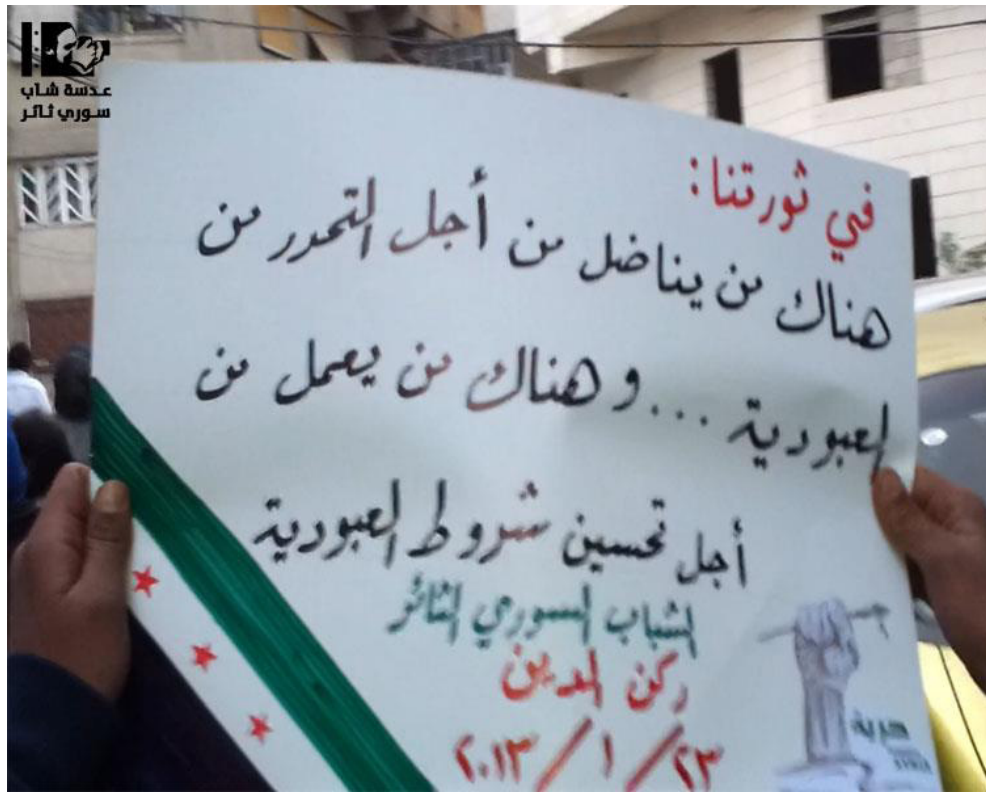 عدسة شاب
سوري ثائر
في ثورتنا:
هناك من يناضل من أجل التحرر من
العبودية ... و هناك من يعمل من
أجل تحسين شروط العبودية
الشباب السوري الثائر
ركن الدين
٢٣ / ١ / ٢٠١٣
حرية
SYRIA